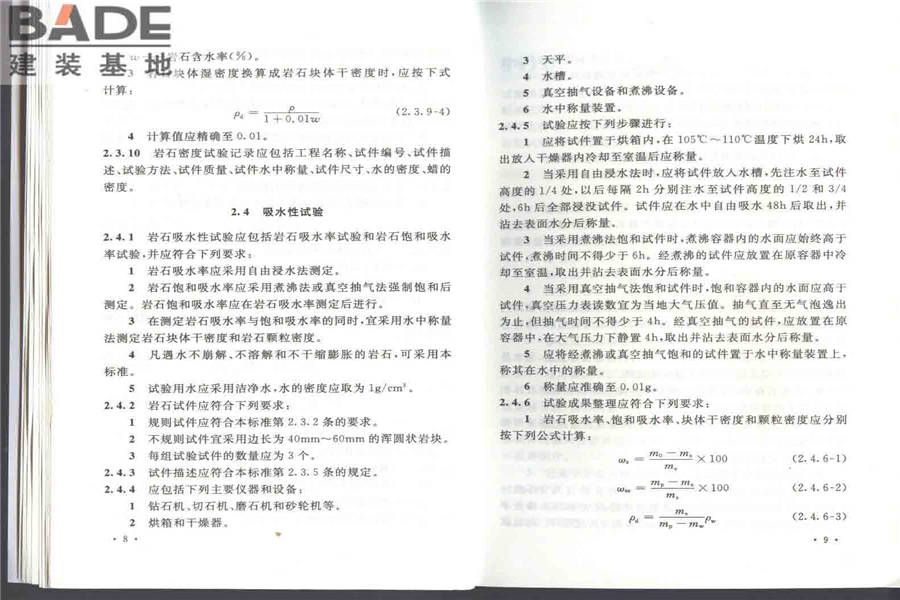 BADE
建装基地
w 岩石含水率(%)。
3 岩石块体湿密度换算成岩石块体干密度时,应按下式
计算:
ρd = ρ / (1+0.01w) (2.3.9-4)
4 计算值应精确至 0.01。
2.3.10 岩石密度试验记录应包括工程名称、试件编号、试件描
述、试验方法、试件质量、试件水中称量、试件尺寸、水的密度、蜡的
密度。
2.4 吸水性试验
2.4.1 岩石吸水性试验应包括岩石吸水率试验和岩石饱和吸水
率试验,并应符合下列要求:
1 岩石吸水率应采用自由浸水法测定。
2 岩石饱和吸水率应采用煮沸法或真空抽气法强制饱和后
测定。岩石饱和吸水率应在岩石吸水率测定后进行。
3 在测定岩石吸水率与饱和吸水率的同时,宜采用水中称量
法测定岩石块体干密度和岩石颗粒密度。
4 凡遇水不崩解、不溶解和不干缩膨胀的岩石,可采用本
标准。
5 试验用水应采用洁净水,水的密度应取为 1g/cm³。
2.4.2 岩石试件应符合下列要求:
1 规则试件应符合本标准第 2.3.2 条的要求。
2 不规则试件宜采用边长为 40mm~60mm 的浑圆状岩块。
3 每组试验试件的数量应为 3 个。
2.4.3 试件描述应符合本标准第 2.3.5 条的规定。
2.4.4 应包括下列主要仪器和设备:
1 钻石机、切石机、磨石机和砂轮机等。
2 烘箱和干燥器。
· 8 ·
3 天平。
4 水槽。
5 真空抽气设备和煮沸设备。
6 水中称量装置。
2.4.5 试验应按下列步骤进行:
1 应将试件置于烘箱内,在 105℃~110℃温度下烘 24h,取
出放入干燥器内冷却至室温后应称量。
2 当采用自由浸水法时,应将试件放入水槽,先注水至试件
高度的 1/4 处,以后每隔 2h 分别注水至试件高度的 1/2 和 3/4
处,6h 后全部浸没试件。试件应在水中自由吸水 48h 后取出,并
沾去表面水分后称量。
3 当采用煮沸法饱和试件时,煮沸容器内的水面应始终高于
试件,煮沸时间不得少于 6h。经煮沸的试件应放置在原容器中冷
却至室温,取出并沾去表面水分后称量。
4 当采用真空抽气法饱和试件时,饱和容器内的水面应高于
试件,真空压力表读数宜为当地大气压值。抽气直至无气泡逸出
为止,但抽气时间不得少于 4h。经真空抽气的试件,应放置在原
容器中,在大气压力下静置 4h,取出并沾去表面水分后称量。
5 应将经煮沸或真空抽气饱和的试件置于水中称量装置上,
称其在水中的称量。
6 称量应准确至 0.01g。
2.4.6 试验成果整理应符合下列要求:
1 岩石吸水率、饱和吸水率、块体干密度和颗粒密度应分别
按下列公式计算:
ωa = (m0 − ms) / ms × 100 (2.4.6-1)
ωsa = (mp − ms) / ms × 100 (2.4.6-2)
ρd = ms / (mp − mw) ρw (2.4.6-3)
· 9 ·